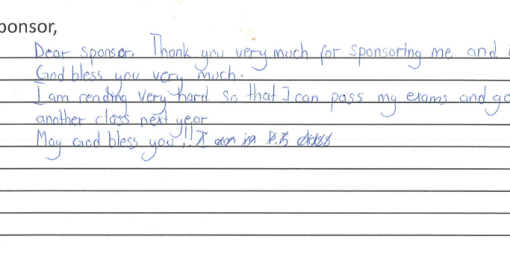 ponsor,
Dear sponsor, Thank you very much for sponsoring me and
God bless you very much.
I am reading very hard so that I can pass my exams and go
another class next year
May God bless you!! I am in P.5 class